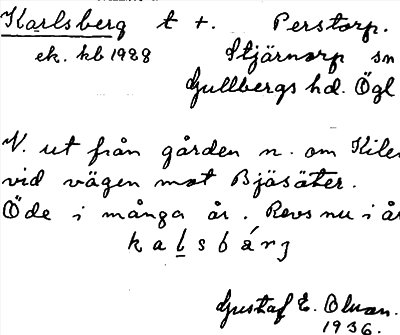 Karlsberg t +. Perstorp.
ek. hb 1928 Stjärnorp sn
Gullbergs hd. Ögl
N. ut från gården n. om Kilen
vid vägen mot Bjäsäter.
Öde i många år. Revs nu i år
kalsbárj
Gustaf E. Olsson.
1936.